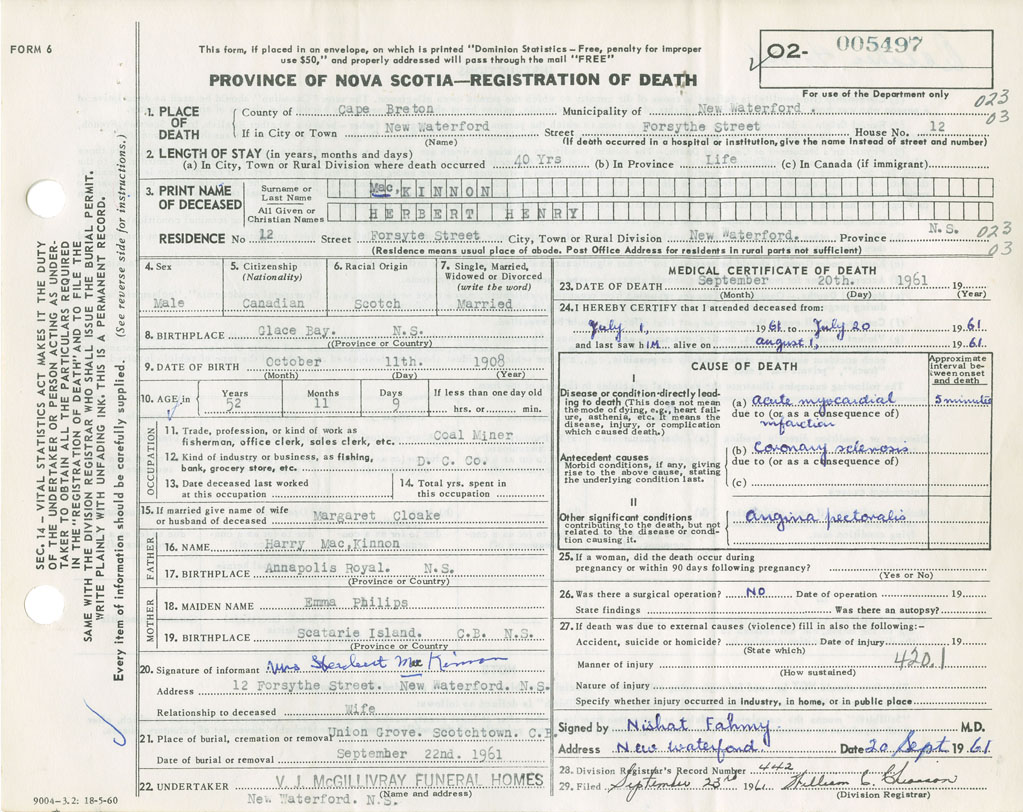 FORM 6
This form, if placed in an envelope, on which is printed "Dominion Statistics – Free, penalty for improper
use $50," and properly addressed will pass through the mail "FREE"
PROVINCE OF NOVA SCOTIA—REGISTRATION OF DEATH
O2- 005497
For use of the Department only
023
03
1. PLACE OF DEATH
County of Cape Breton Municipality of New Waterford .
If in City or Town New Waterford Street Forsythe Street House No. 12
(Name) (If death occurred in a hospital or institution, give the name instead of street and number)
2. LENGTH OF STAY (in years, months and days)
(a) In City, Town or Rural Division where death occurred 40 Yrs (b) In Province Life (c) In Canada (if immigrant)
3. PRINT NAME OF DECEASED
Surname or Last Name Mac,KINNON
All Given or Christian Names HERBERT HENRY
RESIDENCE No 12 Street Forsyte Street City, Town or Rural Division New Waterford. Province N.S. 023
03
(Residence means usual place of abode. Post Office Address for residents in rural parts not sufficient)
4. Sex
Male
5. Citizenship
(Nationality)
Canadian
6. Racial Origin
Scotch
7. Single, Married,
Widowed or Divorced
(write the word)
Married
8. BIRTHPLACE Glace Bay. N.S.
(Province or Country)
9. DATE OF BIRTH October 11th. 1908
(Month) (Day) (Year)
10. AGE in
Years Months Days If less than one day old
52 11 9 hrs. or min.
OCCUPATION
11. Trade, profession, or kind of work as
fisherman, office clerk, sales clerk, etc. Coal Miner
12. Kind of industry or business, as fishing,
bank, grocery store, etc. D. C. Co.
13. Date deceased last worked
at this occupation
14. Total yrs. spent in
this occupation
15. If married give name of wife
or husband of deceased Margaret Cloake
FATHER
16. NAME Harry Mac,Kinnon
17. BIRTHPLACE Annapolis Royal. N.S.
(Province or Country)
MOTHER
18. MAIDEN NAME Emma Philips
19. BIRTHPLACE Scatarie Island. C.B. N.S.
(Province or Country)
20. Signature of informant Mrs Herbert Mac Kinnon
Address 12 Forsythe Street. New Waterford. N.S.
Relationship to deceased Wife
21. Place of burial, cremation or removal Union Grove. Scotchtown. C.B.
Date of burial or removal September 22nd. 1961
22. UNDERTAKER V. J. McGILLIVRAY FUNERAL HOMES
(Name and address)
New Waterford. N.S.
9004-3.2: 18-5-60
MEDICAL CERTIFICATE OF DEATH
23. DATE OF DEATH September 20th. 1961 19
(Month) (Day) (Year)
24. I HEREBY CERTIFY that I attended deceased from:
July 1, 1961 to July 20 1961
and last saw hIM alive on august 1, 1961
CAUSE OF DEATH
Approximate
interval be-
tween onset
and death
I
Disease or condition directly lead-
ing to death (This does not mean
the mode of dying, e.g., heart fail-
ure, asthenia, etc. It means the
disease, injury, or complication
which caused death.)
(a) acute myocardial 5 minutes
due to (or as a consequence of)
infarction
Antecedent causes
Morbid conditions, if any, giving
rise to the above cause, stating
the underlying condition last.
(b) Coronary sclerosis
due to (or as a consequence of)
(c)
II
Other significant conditions
contributing to the death, but not
related to the disease or condi-
tion causing it.
angina pectoralis
25. If a woman, did the death occur during
pregnancy or within 90 days following pregnancy?
(Yes or No)
26. Was there a surgical operation? NO Date of operation 19
State findings Was there an autopsy?
27. If death was due to external causes (violence) fill in also the following:–
Accident, suicide or homicide? Date of injury 19
(State which)
Manner of injury 420.1
(How sustained)
Nature of injury
Specify whether injury occurred in industry, in home, or in public place
Signed by Nishat Fahmy M.D.
Address New waterford. Date 20 Sept 1961
28. Division Registrar's Record Number 442
29. Filed September 23rd 1961 William C
(Division Registrar)
SEC. 14 – VITAL STATISTICS ACT MAKES IT THE DUTY
OF THE UNDERTAKER OR PERSON ACTING AS UNDER-
TAKER TO OBTAIN ALL THE PARTICULARS REQUIRED
IN THE "REGISTRATION OF DEATH" AND TO FILE THE
SAME WITH THE DIVISION REGISTRAR WHO SHALL ISSUE THE BURIAL PERMIT.
WRITE PLAINLY WITH UNFADING INK. THIS IS A PERMANENT RECORD.
Every item of information should be carefully supplied. (See reverse side for instructions.)